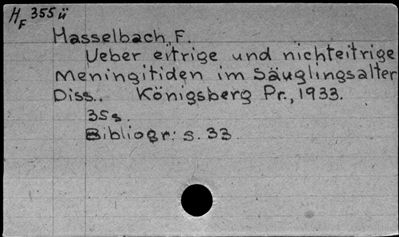 HF 355ü
Hasselbach, F.
Ueber eitrige und nichteitrige
Meningitiden im Säuglingsalter
Diss.. Königsberg Pr., 1933.
35s.
Bibliogr: s. 33